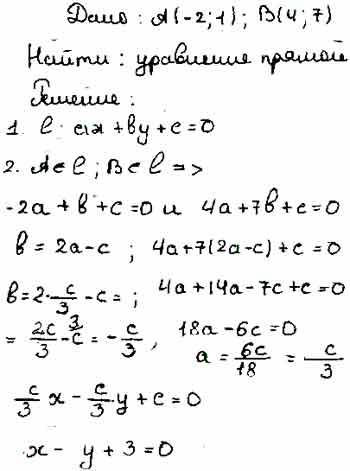 Дано: A(-2;1); B(4;7)
Найти: уравнение прямой
Решение:
1. l: ax+by+c=0
2. A∈l; B∈l =>
-2a+b+c=0 и 4a+7b+c=0
b=2a-c; 4a+7(2a-c)+c=0
b=2·c/3-c=; 4a+14a-7c+c=0
=2c/3-c^3=-c/3, 18a-6c=0
a=6c/18=c/3
c/3 x - c/3 y + c=0
x - y + 3=0